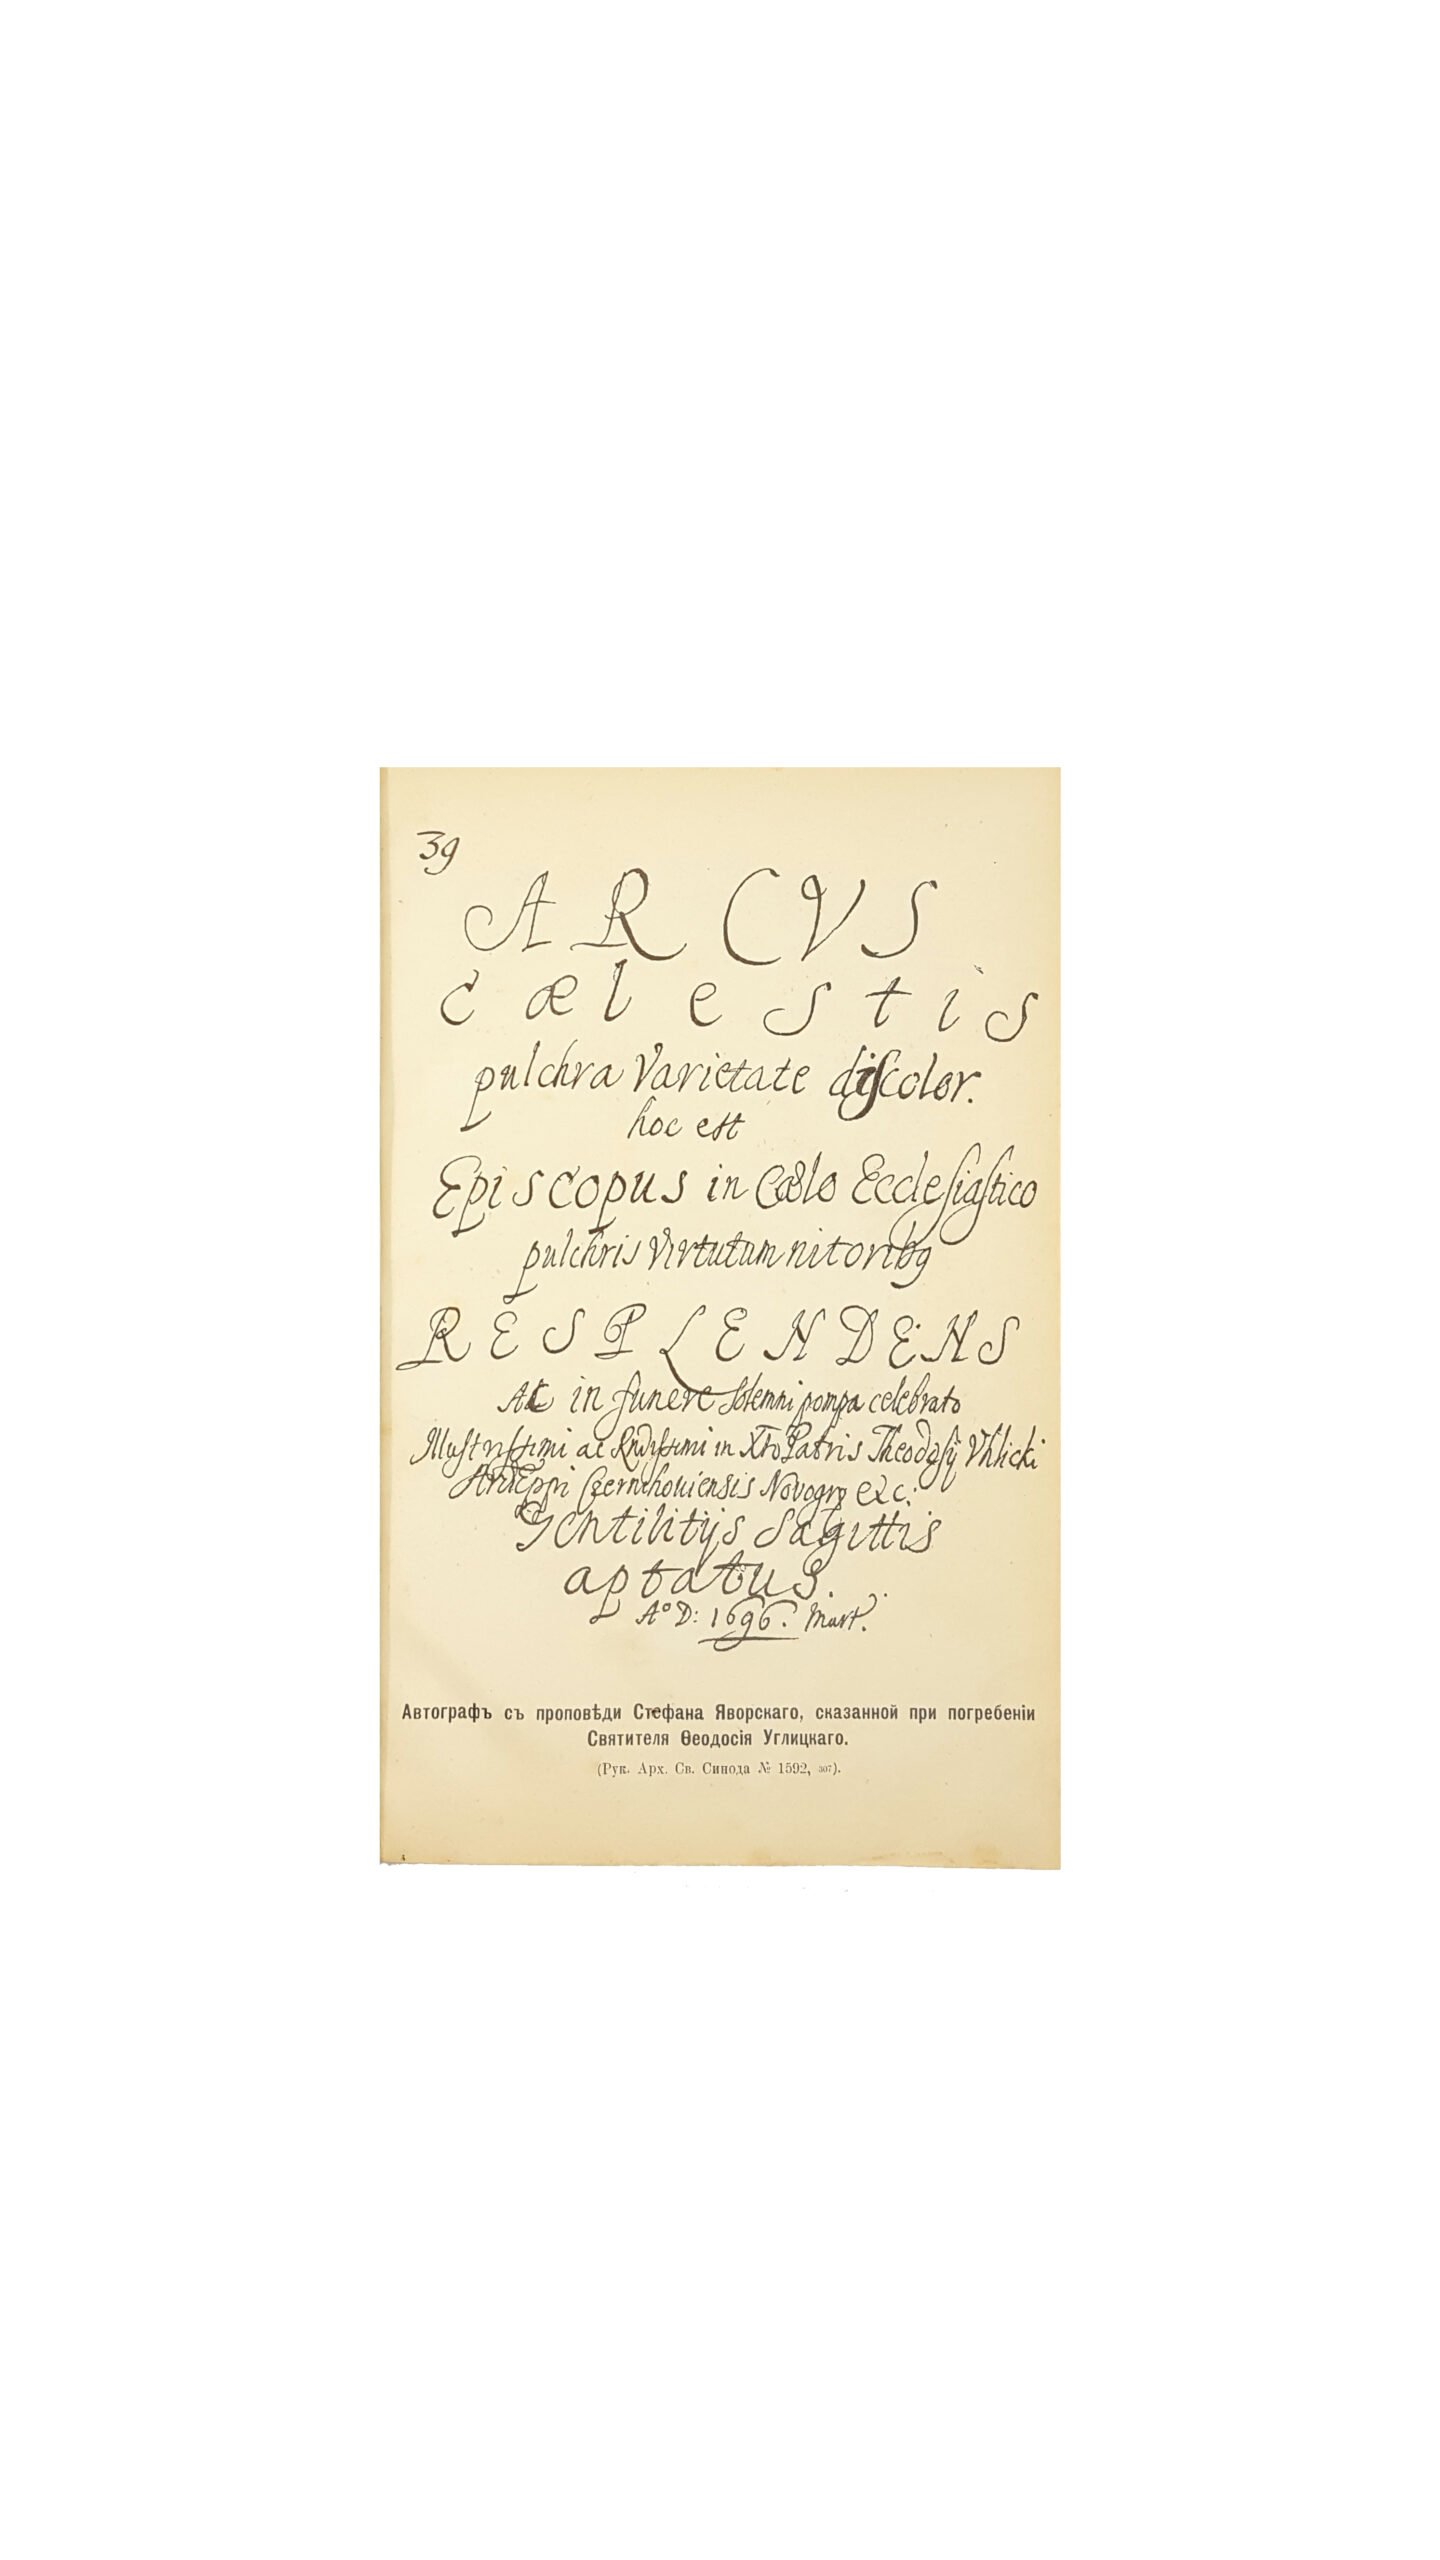 39
ARCVS
cælestis
pulchra Varietate discolor.
hoc est
Episcopus in Cœlo Ecclesiastico
pulchris Virtutum nitoribq
RESPLENDENS
Ac in funere solemni pompa celebrato
Illustrissimi ac Rndissimi in Xto Patris Theodosij Vhlicki
ArchiEppi Czernihouiensis Novogro &c:
Gentilitijs Sagittis
aptatus.
Aº D: 1696. Mart.
Автографъ съ проповѣди Стефана Яворскаго, сказанной при погребеніи
Святителя Ѳеодосія Углицкаго.
(Рук. Арх. Св. Синода № 1592, 307).